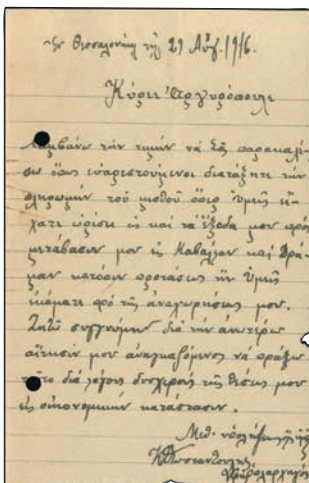 Ἐν Θεσσαλονίκῃ τῇ 29 Αὐγ. 1916.
Κύριε Ἀργυρόπουλε
Λαμβάνω τὴν τιμὴν νὰ σᾶς παρακαλέ-
σω ὅπως εὐαρεστούμενοι διατάξητε τὴν
πληρωμὴν τοῦ μισθοῦ ὅσον Ὑμεῖς εἴ-
χατε ὁρίσει ὡς καὶ τὰ ἔξοδά μου πρὸς
μετάβασίν μου εἰς Καβάλλαν καὶ Δρά-
μαν κατόπιν προτάσεως ἣν Ὑμεῖς
ἐκάματε πρὸ τῆς ἀναχωρήσεώς μου.
Ζητῶ συγγνώμην διὰ τὴν ἀνωτέρω
αἴτησίν μου ἀναγκαζόμενος νὰ πράξω
τοῦτο διὰ λόγους δυσχεροῦς τῆς θέσεώς μου
εἰς οἰκονομικὴν κατάστασιν.
Μεθ' ὑπολήψεως